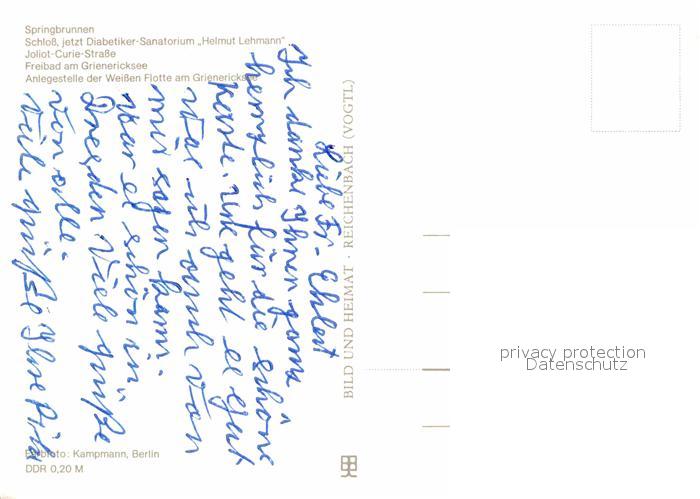 Springbrunnen
Schloß, jetzt Diabetiker-Sanatorium „Helmut Lehmann"
Joliot-Curie-Straße
Freibad am Grienericksee
Anlegestelle der Weißen Flotte am Grienericksee
Liebe Fr. Ehlert
Ich danke Ihnen ganz
herzlich für die schöne
Karte. geht es gut
was ich auch von
mir sagen kann.
war es schön in
Dresden Viele grüße
von alle.
Viele grüße Ihre
BILD UND HEIMAT · REICHENBACH (VOGTL)
Farbfoto: Kampmann, Berlin
DDR 0,20 M
privacy protection
Datenschutz